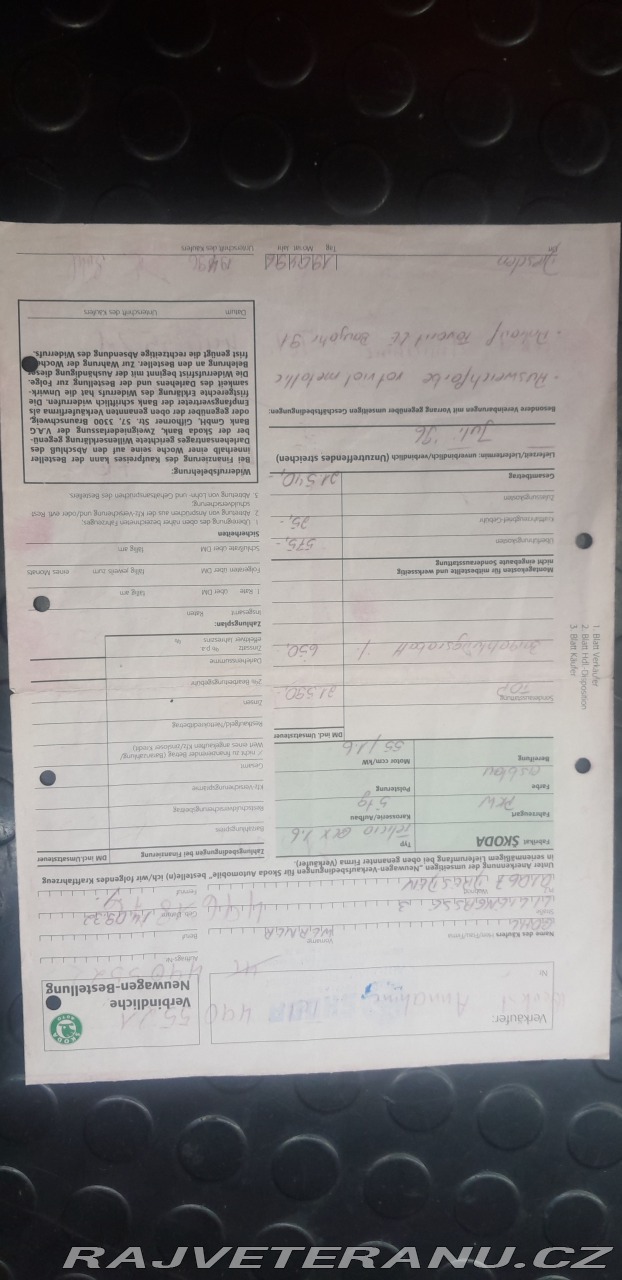 Verbindliche
Neuwagen-Bestellung
ŠKODA
AUTO
Verkäufer:
Nr.
Auftrags-Nr.
Name des Käufers Herr/Frau/Firma
Vorname
WERNER
Beruf
Straße
LILIENGASSE 3
Geb. Datum
14.09.32
PLZ
Wohnort
01067 DRESDEN
Fernruf
Unter Anerkennung der umseitigen „Neuwagen-Verkaufsbedingungen für Skoda Automobile" bestelle(n) ich/wir folgendes Kraftfahrzeug
in serienmäßigem Lieferumfang bei oben genannter Firma (Verkäufer).
Fabrikat ŠKODA
Typ
Felicia GLX 1.6
Fahrzeugart
PKW
Karosserie/Aufbau
5 tg
Farbe
Polsterung
Bereifung
Motor ccm/kW
55/1.6
DM incl. Umsatzsteuer
Sonderausstattung
TOP
21.590.-
%
650,
Montagekosten für mitbestellte und werksseitig
nicht eingebaute Sonderausstattung
Überführungskosten
575,-
Kraftfahrzeugbrief-Gebühr
25,-
Zulassungskosten
Gesamtbetrag
21.540,-
Lieferzeit/Liefertermin: unverbindlich/verbindlich (Unzutreffendes streichen)
Juli '96
Besondere Vereinbarungen mit Vorrang gegenüber umseitigen Geschäftsbedingungen:
- Ausweichfarbe rotviol metallic
- Ankauf Favorit LE Baujahr 91
Dresden
Ort
Tag Monat Jahr
Unterschrift des Käufers
Zahlungsbedingungen bei Finanzierung
DM incl. Umsatzsteuer
Barzahlungspreis
Restschuldversicherungsbeitrag
Kfz-Versicherungsprämie
Gesamt
Zinsen
2% Bearbeitungsgebühr
Darlehenssumme
Zinssatz % p.a.
effektiver Jahreszins %
Zahlungsplan:
insgesamt Raten
1. Rate über DM fällig am
Folgeraten über DM fällig jeweils zum eines Monats
Schlußrate über DM fällig am
Sicherheiten
1. Übereignung des oben näher bezeichneten Fahrzeuges.
2. Abtretung von Ansprüchen aus der Kfz-Versicherung und/oder evtl. Rest
schuldversicherung.
3. Abtretung von Lohn- und Gehaltsansprüchen des Bestellers
Widerrufsbelehrung:
Bei Finanzierung des Kaufpreises kann der Besteller
innerhalb einer Woche seine auf den Abschluß des
Darlehensantrages gerichtete Willenserklärung gegenü-
ber der Skoda Bank, Zweigniederlassung der V.A.G
Bank GmbH, Gifhorner Str. 57, 3300 Braunschweig,
oder gegenüber der oben genannten Verkäuferfirma als
Empfangsvertreter der Bank schriftlich widerrufen. Die
fristgerechte Erklärung des Widerrufs hat die Unwirk-
samkeit des Darlehens und der Bestellung zur Folge.
Die Widerrufsfrist beginnt mit der Aushändigung dieser
Belehrung an den Besteller. Zur Wahrung der Wochen-
frist genügt die rechtzeitige Absendung des Widerrufs.
Datum
Unterschrift des Käufers
1. Blatt Verkäufer
2. Blatt Hdl.-Disposition
3. Blatt Käufer
RAJVETERANU.CZ